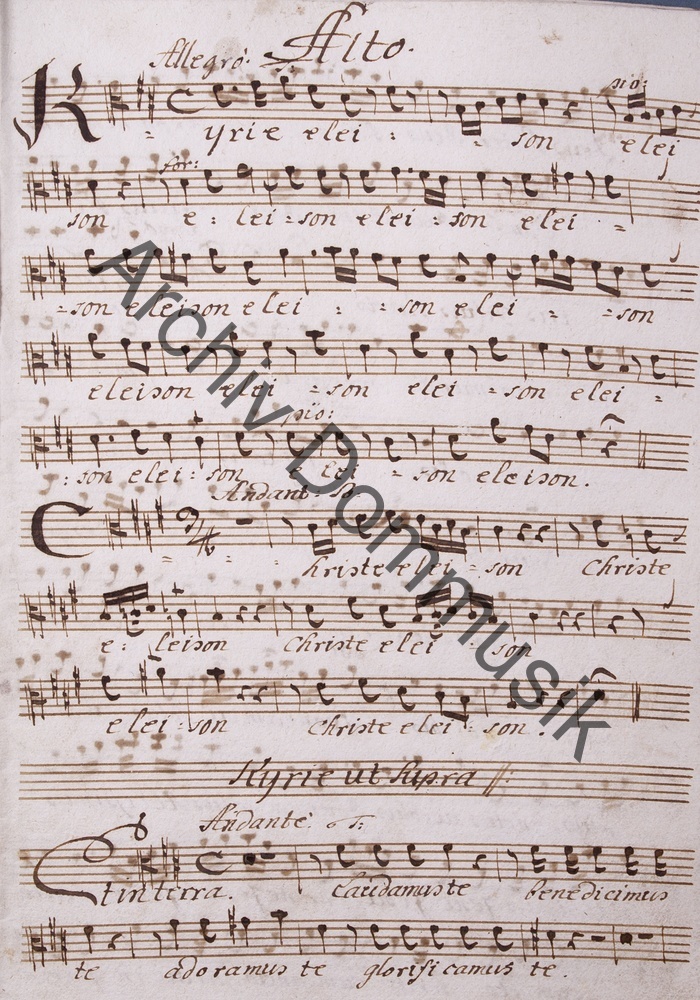 Alto.
Allegro:
pio:
Kyrie elei: = = son elei
for:
son e: lei = son elei = son elei =
= son eleison elei = = son elei = = son
eleison elei = son elei = son elei =
pio:
: son elei: son e lei = son eleison.
Andante:
= = = Christe elei = son Christe
e: leison Christe elei = son
elei: son Christe elei = son.
Kyrie ut supra
Andante:
Et in terra. Laudamus te benedicimus
te adoramus te glorificamus te.
Archiv Dommusik